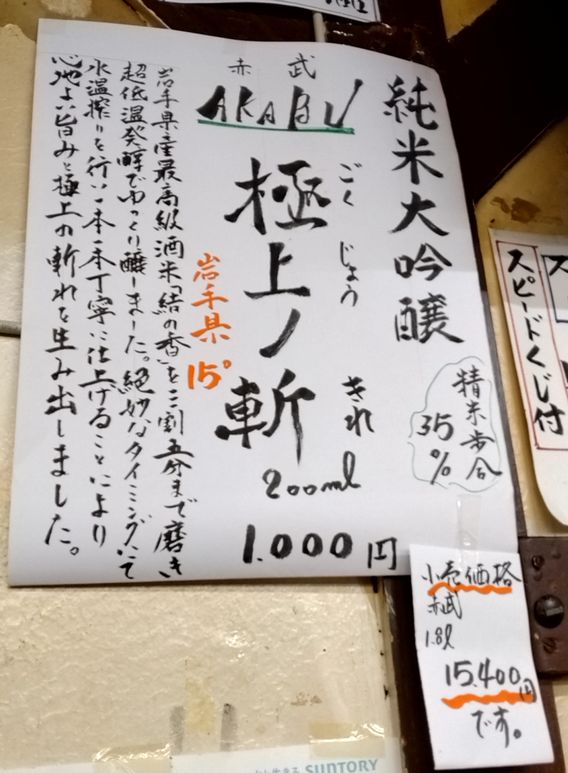 純米大吟醸
精米歩合
35%
赤武
AKABU
極上ノ斬
ごくじょう
きれ
200ml
1.000円
岩手県
15°
岩手県産最高級酒米「結の香」を三割五分まで磨き
超低温発酵でゆっくり醸しました。絶妙なタイミングにて
氷温搾りを行い一本一本丁寧に仕上げることにより
心地よい旨みと極上の斬れを生み出しました。
小売価格
赤武
1.8ℓ
15.400円
です。
スピードくじ付
SUNTORY